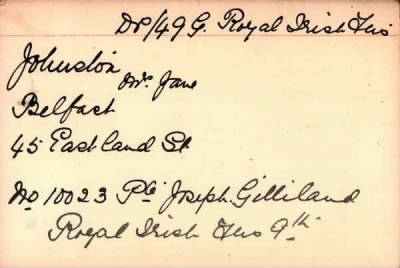 DP/49 G. Royal Irish Fus
Johnston Mrs Jane
Belfast
45 Eastland St
No 10023 Pte Joseph Gilliland
Royal Irish Fus 9th